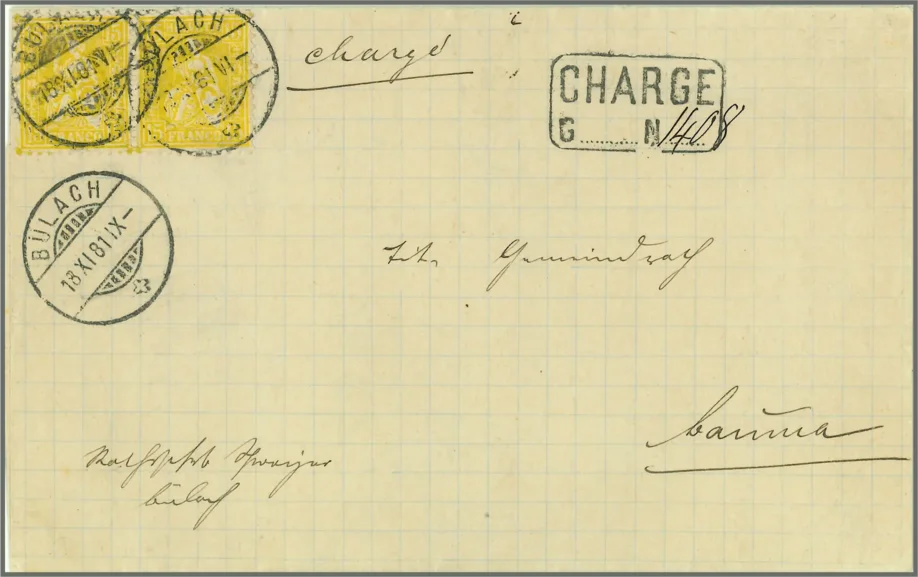 BÜLACH
18 XI 81 VI–
15
FRANCO
BÜLACH
81 VI–
15 FRANCO
chargé
CHARGE
G N 1408
BÜLACH
18 XI 81 IX–
Tit. Gemeindrath
Bauma
Bülach